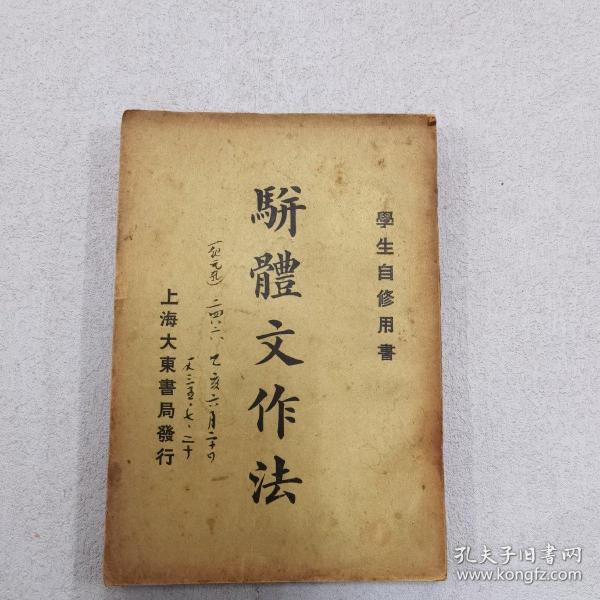 學生自修用書
駢體文作法
乙亥六月二十日
一九三五·七·二十
上海大東書局發行
孔夫子旧书网
www.kongfz.com